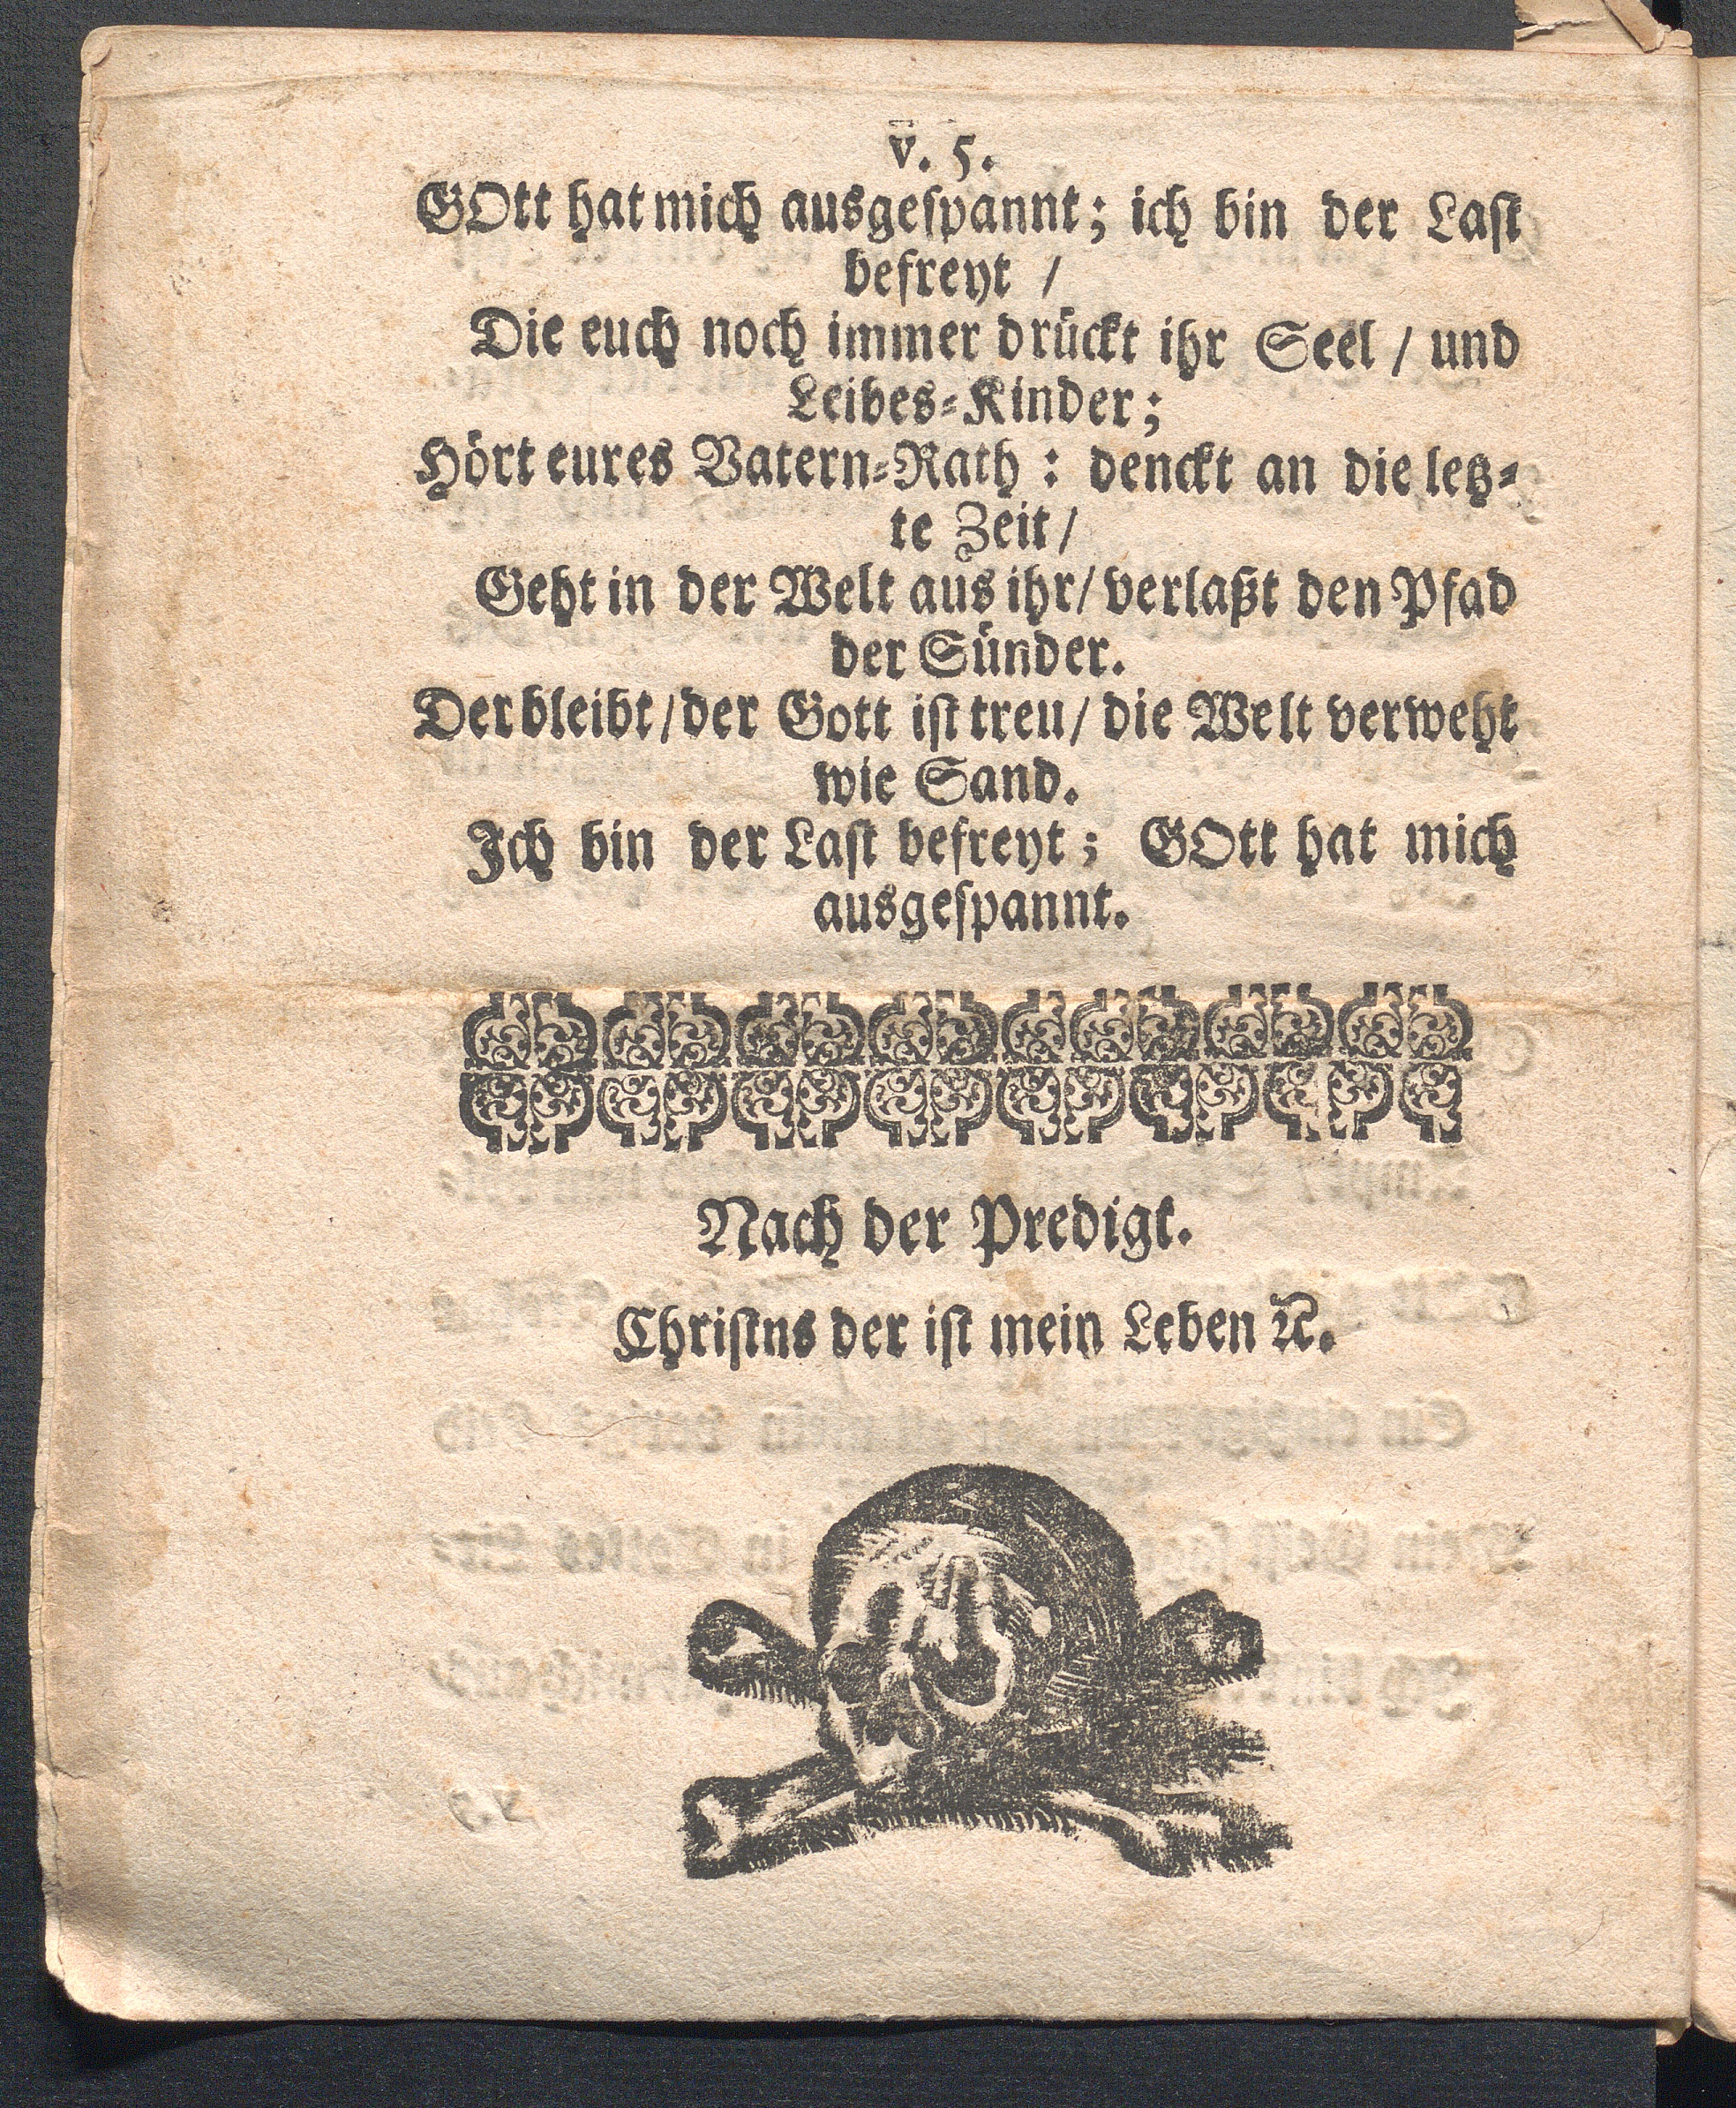 v. 5.
GOtt hat mich ausgeſpannt; ich bin der Laſt
befreyt /
Die euch noch immer drückt ihr Seel / und
Leibes-Kinder;
Hört eures Vatern-Rath : denckt an die letz-
te Zeit /
Geht in der Welt aus ihr / verlaßt den Pfad
der Sünder.
Der bleibt / der Gott iſt treu / die Welt verweht
wie Sand.
Ich bin der Laſt befreyt; GOtt hat mich
ausgeſpannt.
Nach der Predigt.
Chriſtns der iſt mein Leben ꝛc.